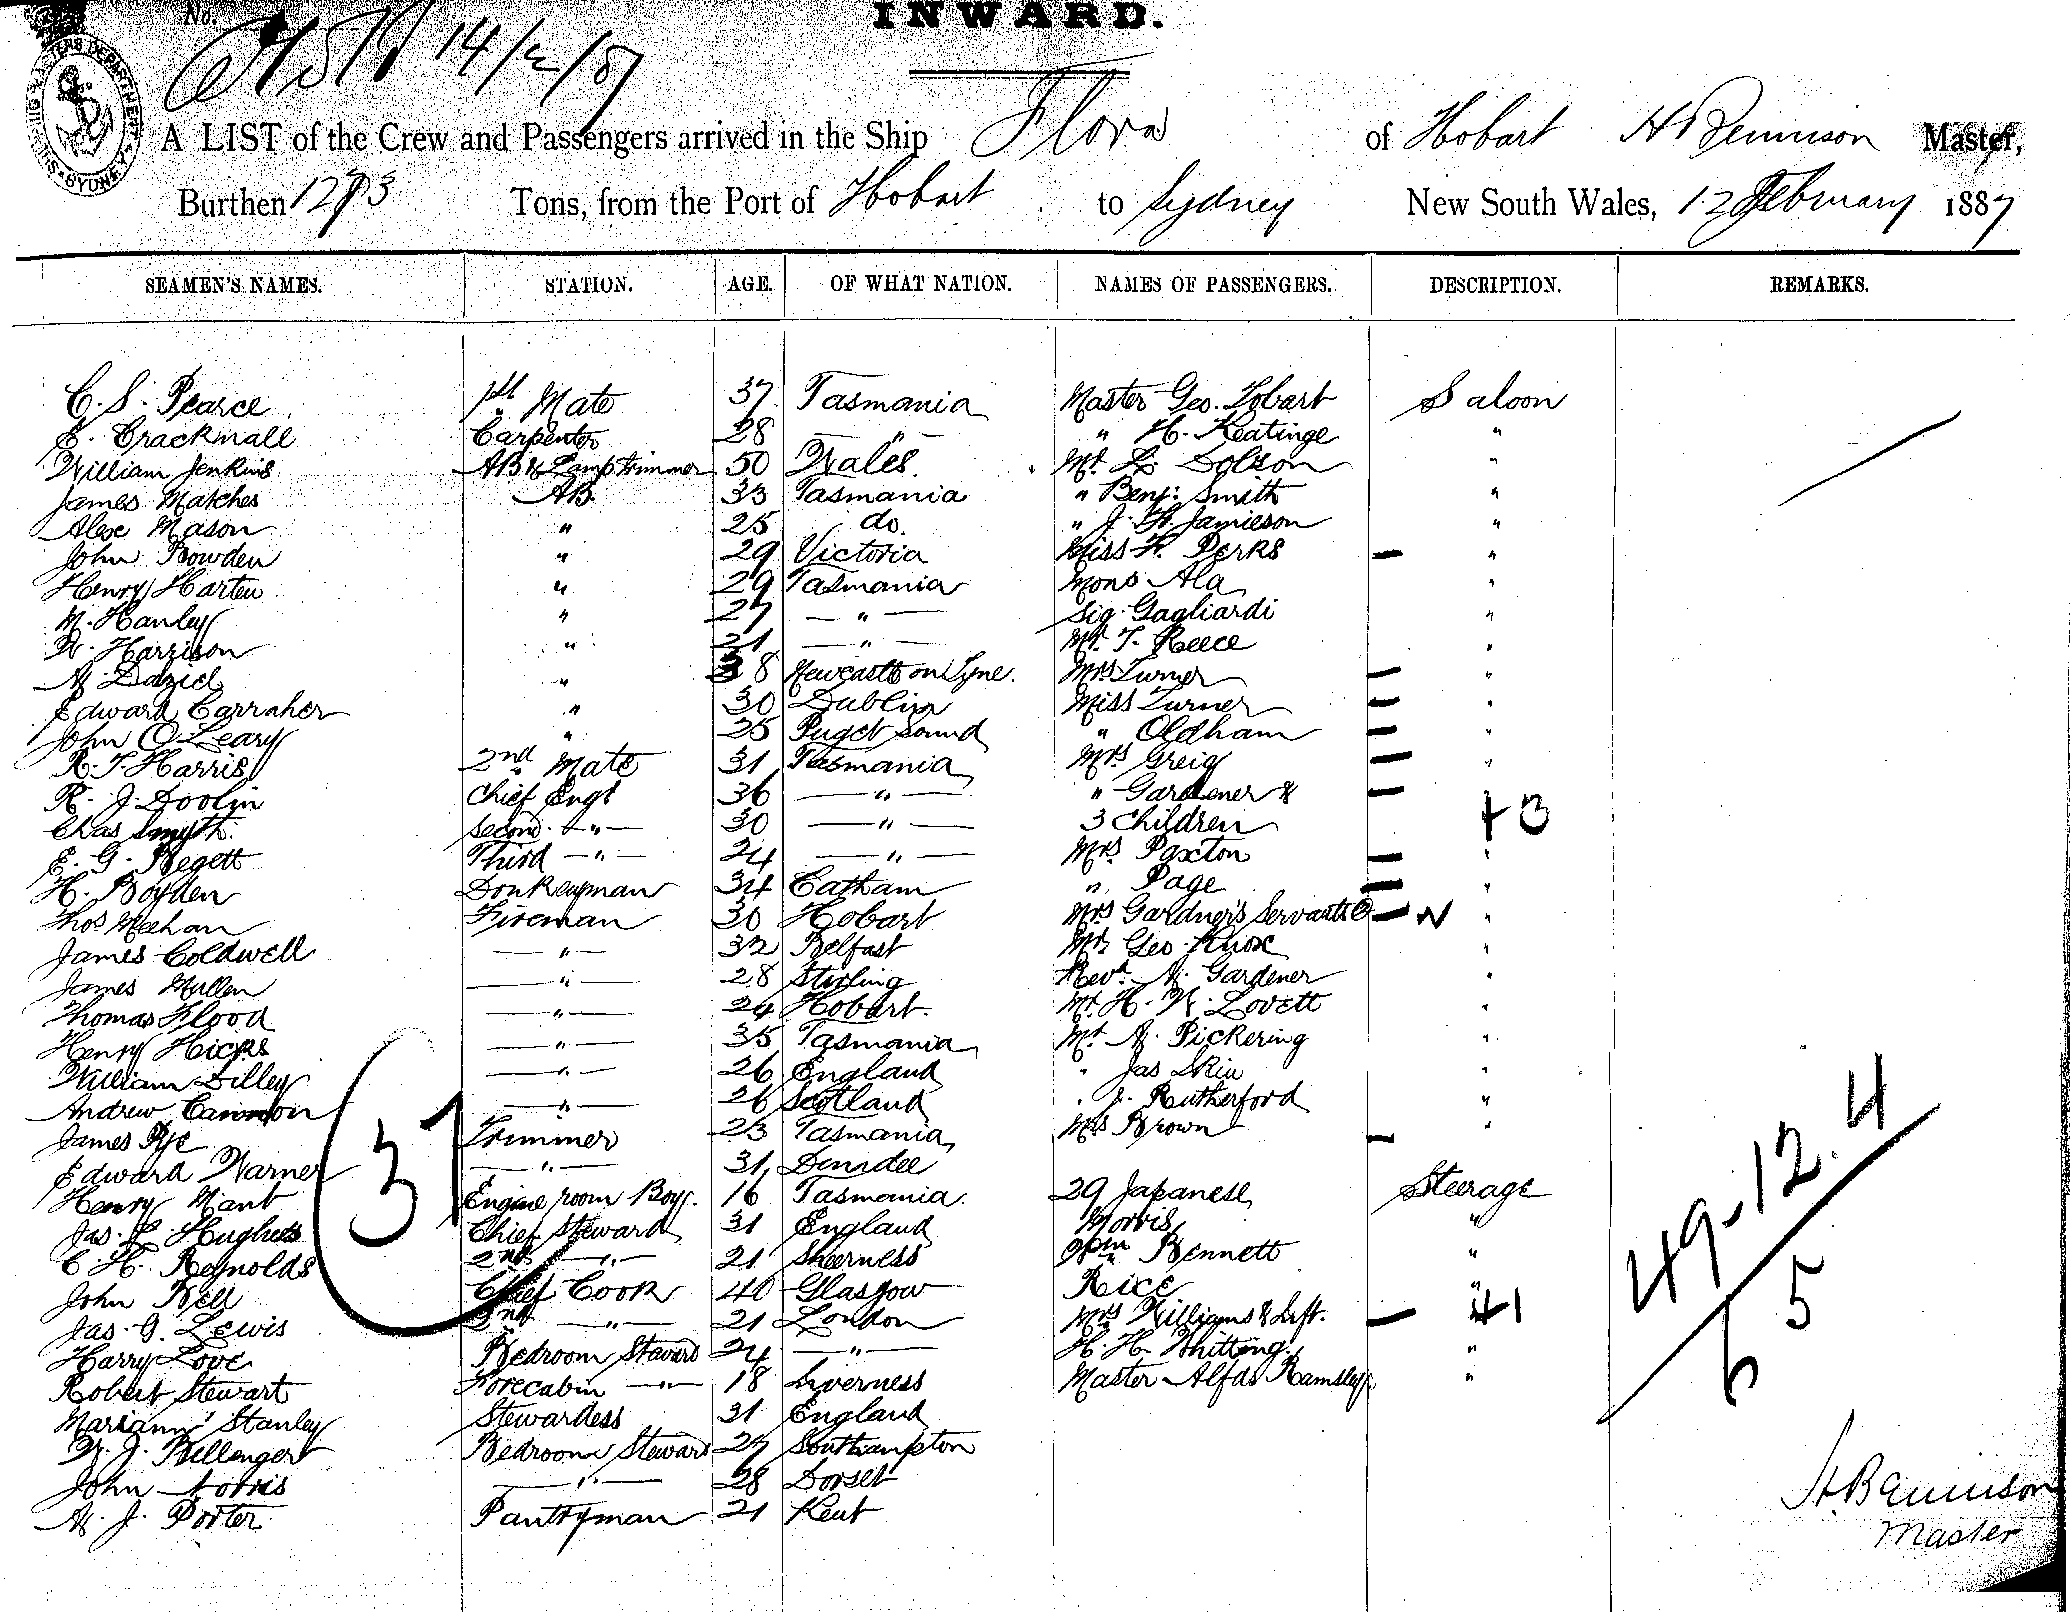 No.
INWARD.
14/2/87
SHIPPING MASTERS DEPARTMENT SYDNEY
A LIST of the Crew and Passengers arrived in the Ship Flora of Hobart H Bennison Master,
Burthen 1273 Tons, from the Port of Hobart to Sydney New South Wales, 12 February 1887
SEAMEN'S NAMES. STATION. AGE. OF WHAT NATION. NAMES OF PASSENGERS. DESCRIPTION. REMARKS.
C. S. Pearce 1st Mate 37 Tasmania Master Geo. Hobart Saloon
E. Crackmall Carpenter 28 " " H. Keatinge "
William Jenkins AB & Lamptrimmer 50 Wales Mr. L. Dobson "
James Matches AB 33 Tasmania " Benj. Smith "
Alex Mason " 25 do. " J. H. Jamieson "
John Bowden " 29 Victoria Miss H. Perks "
Henry Harten " 29 Tasmania Mons Ala "
M. Hanley " 27 " Sig. Gagliardi "
W. Harrison " 21 " Mr. T. Reece "
A. Dazied " 38 Newcastle on Tyne. Mrs Turner "
Edward Carraher " 30 Dublin Miss Turner "
John O'Leary " 25 Puget Sound " Oldham "
R. T. Harris 2nd Mate 31 Tasmania Mrs Greig "
R. J. Doolin Chief Engr 36 " " Gardener &
Chas Smyth Second " 30 " 3 Children +3
E. G. Begett Third " 24 " Mrs Paxton "
H. Boyden Donkeyman 34 Catham " Page "
Thos Meehan Fireman 30 Hobart Mrs Gardner's Servants "
James Coldwell " 32 Belfast Mr Geo. Knox "
James Mullen " 28 Stirling Revd. A. Gardener "
Thomas Flood " 24 Hobart. Mr. H. W. Lovett "
Henry Hicks " 35 Tasmania Mr A. Pickering "
William Dilley " 26 England " Jas Skin "
Andrew Cannon " 26 Scotland " J. Rutherford "
James Pye Trimmer 23 Tasmania Mrs Brown "
Edward Warner " 31 Dundee
Henry Mant Engine room Boy. 16 Tasmania. 29 Japanese Steerage
Jas. L. Hughes Chief Steward 31 England Morris "
C. H. Reynolds 2nd " 21 Sheerness Wm Bennett "
John Bell Chief Cook 40 Glasgow Rice "
Jas. G. Lewis 2nd " 21 London Mrs Williams & Inft. +1
Harry Love Bedroom Steward 24 " H. H. Whitting. "
Robert Stewart Forecabin " 18 Inverness Master Alfds Ramsley "
Mariann Stanley Stewardess 31 England
W. J. Billenger Bedroom Steward 27 Southampton
John Norris " 28 Dorset
A. J. Porter Pantryman 21 Kent
37
49.12.4
65
H Bennison
Master